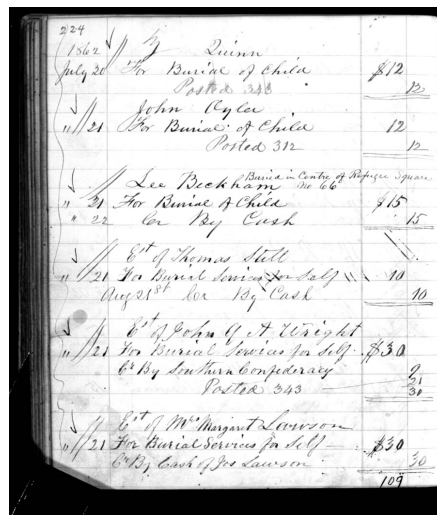 224
1862
Quinn
July 20 For Burial of Child $12
Posted 343 12
John Oyler
" 21 For Burial of Child 12
Posted 312 12
Buried in Centre of Refugee Square
Lee Beckham No 66
" 21 For Burial of Child $15
" 22 Cr By Cash 15
Est of Thomas Still
" 21 For Burial Services for Self 10
Aug 21st Cr By Cash 10
Est of John G A Wright
" 21 For Burial Services for Self $30
Cr By Southern Confederacy 9
21
Posted 343 30
Est of Mrs Margaret Lawson
" 21 For Burial Services for Self $30
Cr By Cash of Jos Lawson 30
109